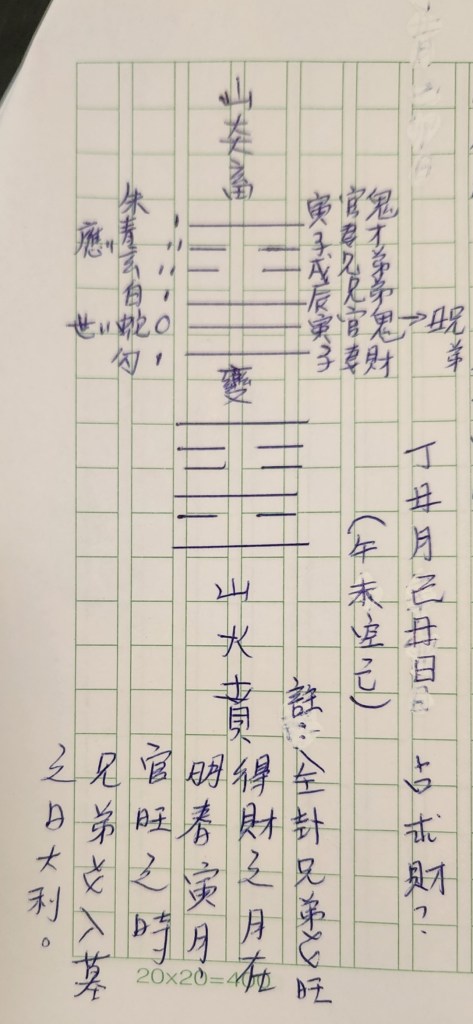 丁丑月己丑日 占求財？
(午未空亡)
山天大畜
朱 寅官鬼
應〃 青 子妻才
玄 戌兄弟
白 辰兄弟
世〃 蛇 寅官鬼→丑兄弟
勾 子妻財
變
山火賁
註：全卦兄弟爻旺
得財之月在
明春寅月，
官旺之時
兄弟爻入墓
之日大利。
20×20=400